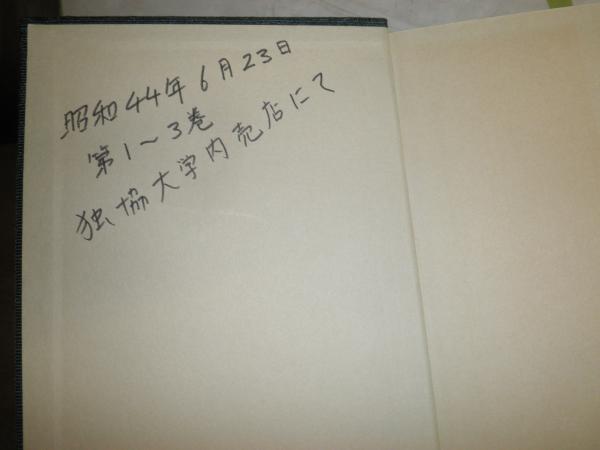 昭和44年6月23日
第1〜3巻
独協大学内売店にて